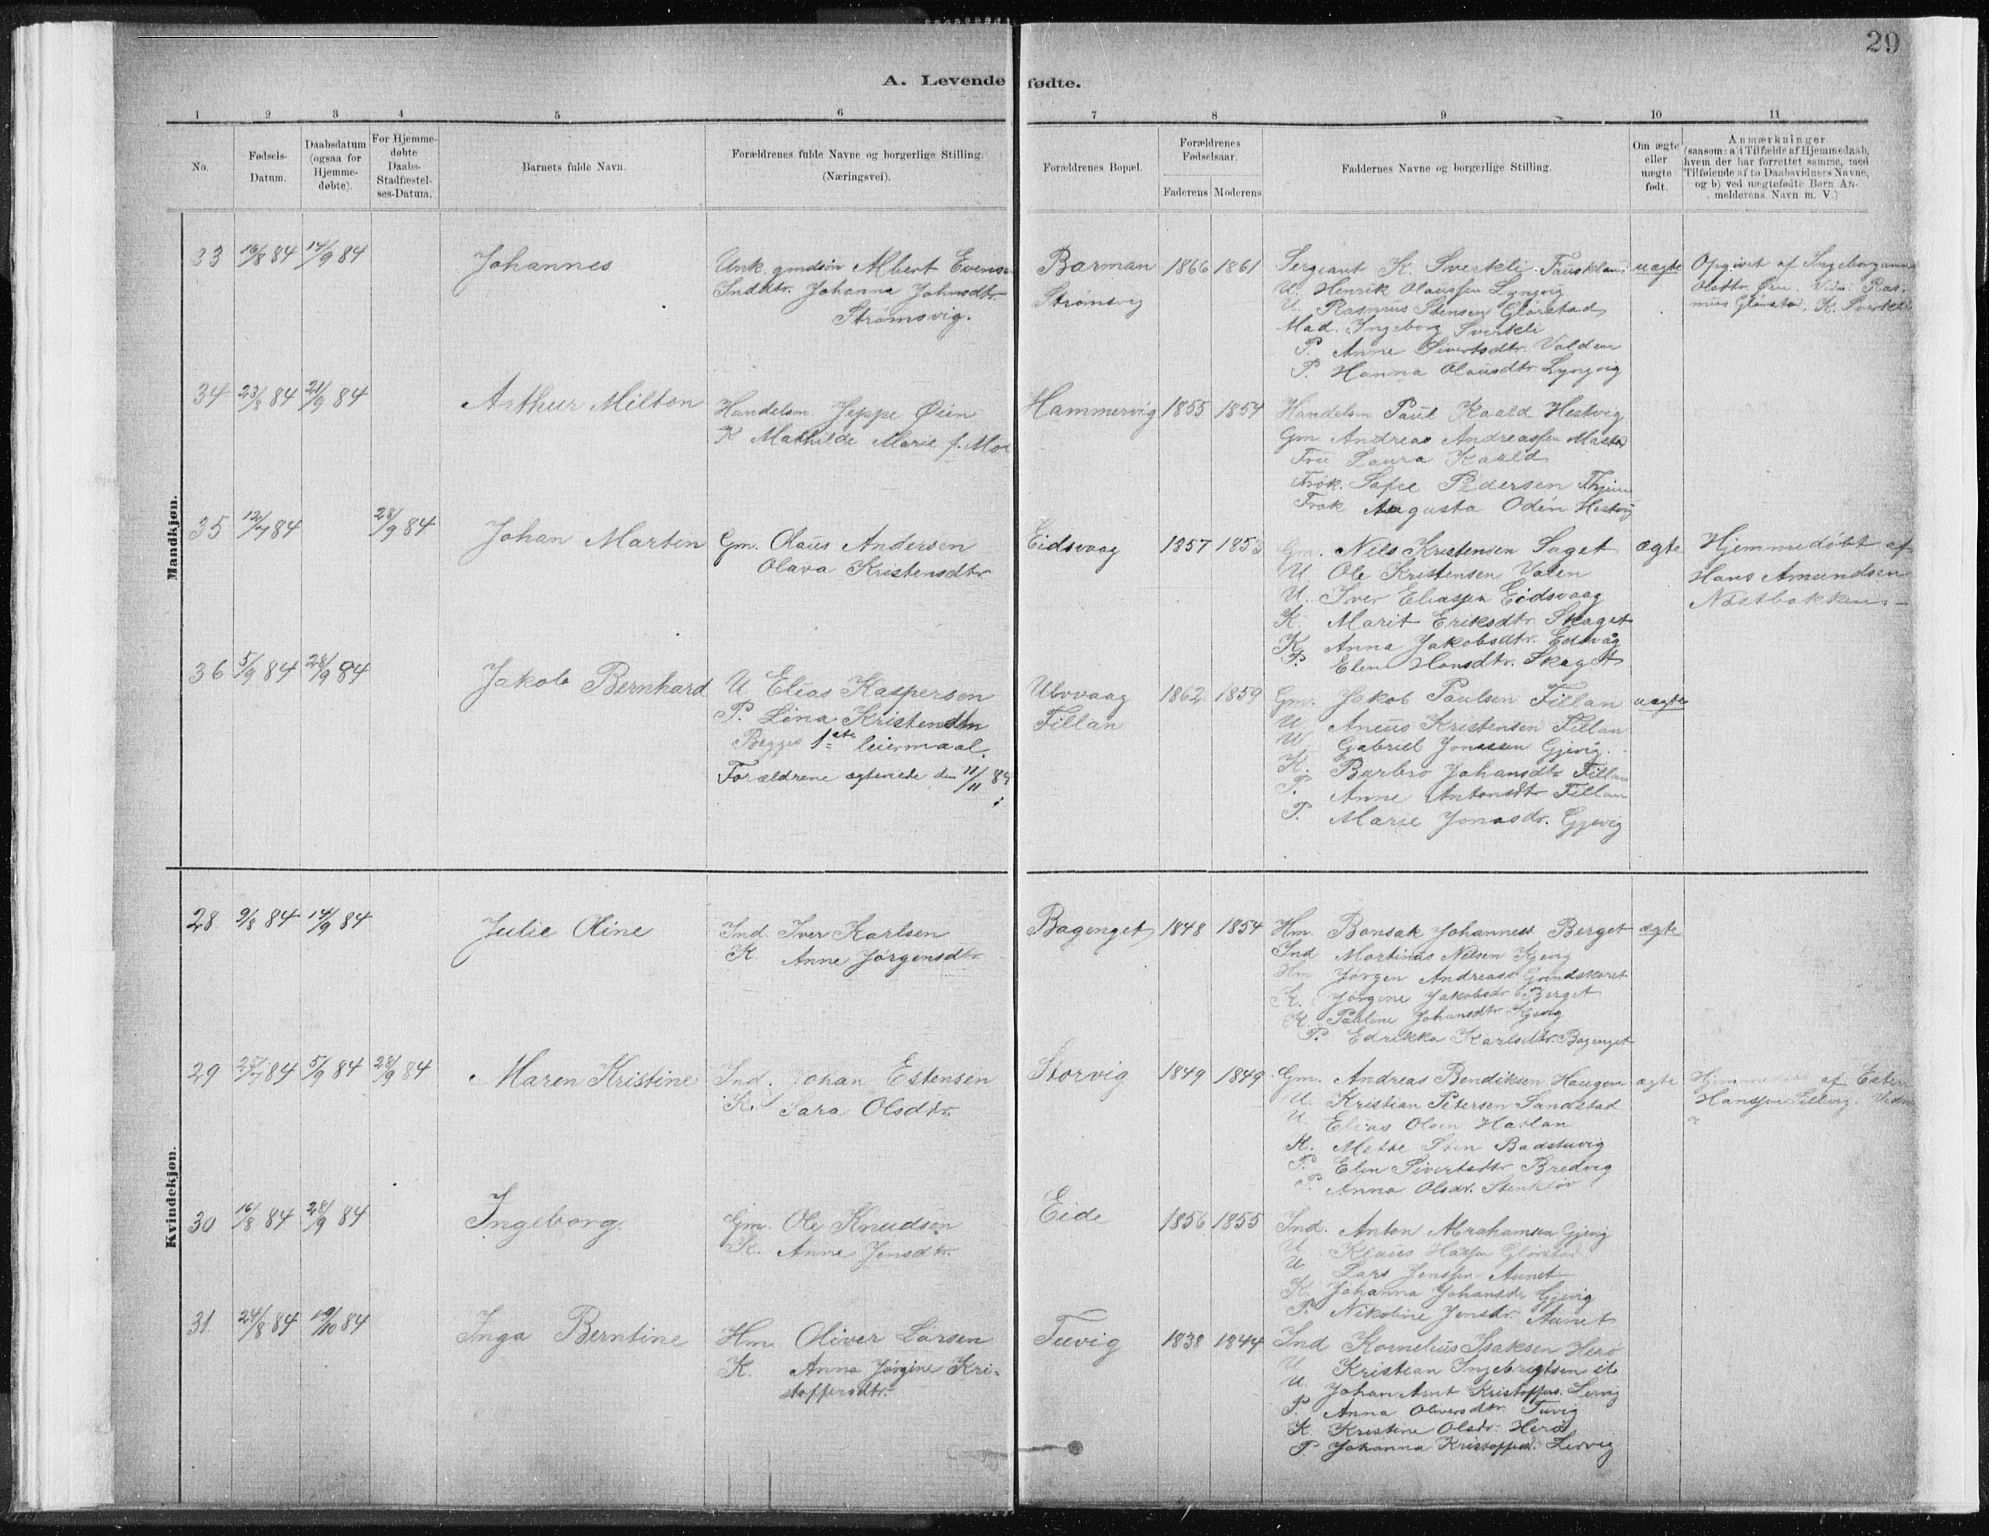 29
A. Levende fødte.
1 2 3 4 5 6 7 8 9 10 11
No.
Fødsels-
Datum.
Daabsdatum
(ogsaa for
Hjemme-
døbte).
For Hjemme-
døbte
Daabs-
Stadfæstel-
ses-Datum.
Barnets fulde Navn.
Forældrenes fulde Navne og borgerlige Stilling.
(Næringsvei).
Forældrenes Bopæl.
Forældrenes
Fødselsaar.
Faderens Moderens
Faddernes Navne og borgerlige Stilling.
Om ægte
eller
uægte
født.
Anmærkninger
(saasom: a) i Tilfælde af Hjemmedaab,
hvem der har forrettet samme, med
Tilføiende af to Daabsvidners Navne,
og b) ved uægtefødte Børn An-
melderens Navn m. V.)
Mandkjøn.
33 16/8 84 14/9 84 Johannes
Unk. gmdsøn Albert Evensen
Inddtr. Johanna Johnsdtr.
Strømsvig.
Barman
Strømsvig
1866 1861
Sergeant K. Sverkli
U. Henrik Olaussen Lyngvig
U. Rasmus Stensen Glørstad
Mad. Ingeborg Sverkli
P. Anne Sivertsdtr. Valden
P. Hanna Olausdtr. Lyngvig
uægte
Opgivet af Ingeborganna
Olsdtr. Øien. Vidn. Ras-
mus Glørstad, K. Sverkli
34 23/8 84 21/9 84 Arthur Milton
Handelsm. Jeppe Øien
K Mathilde Marie f. Moe
Hammervig 1855 1854
Handelsm Paul Kaald Hestvig
Gm Andreas Andreassen Mastad
Fru Laura Kaald
Frøk. Sofie Pedersen
Frøk Augusta Odén Hestvig
35 12/7 84 28/9 84 Johan Martin
Gm. Olaus Andersen
Olava Kristensdtr
Eidsvaag 1857 1853
Gm. Nels Kristensen Saget
U Ole Kristensen Valen
U. Iver Eliassen Eidsvaag
K. Marit Eriksdtr. Skaget
K. Anna Jakobsdtr. Edsvåg
P. Elen Hansdtr. Skaget
ægte
Hjemmedøbt af
Hans Amundsen
Nøstbakken
36 5/9 84 28/9 84 Jakob Bernhard
U Elias Kaspersen
P. Lina Kristensdtr
Begges 1ste leiermaal.
Forældrene ægtevie de 11/11 84
Ulvvaag
Fillan
1862 1859
Gm. Jakob Paulsen Fillan
U Aneus Kristensen Fillan
U. Gabriel Jonassen Gjevig.
K. Barbro Johansdtr Fillan
P. Anne Antonsdtr Fillan
P. Marie Jonasdr. Gjevig
uægte
Kvindekjøn.
28 9/8 84 14/9 84 Julie Oline
Ind. Iver Karlsen
K. Anne Jørgensdtr
Bagenget 1848 1854
Hm. Bonsak Johanness Berget
Ind Martinus Nelsen Kjevig
Hm Jørgen Andreass Grindskaret
K. Jørgine Jakobsdr Berget
K Pauline Johansdtr. Kjevig
P. Edrikka Karlsdtr. Bagenget
ægte
29 25/7 84 5/9 84 28/9 84 Maren Kristine
Ind. Johan Estensen
K. Sara Olsdtr.
Storvig 1849 1849
Gm. Andreas Bendiksen Haugen
U. Kristian Petersen Sandstad
U. Elias Olsen Hatlan
K. Mette Sten Badstuvig
P. Elen Sivertsdtr Bredvig
P. Anna Olsdr. Stenkløv
ægte
Hjemmedøbt af Esten
Hanssen
30 16/8 84 28/9 84 Ingeborg
Gm. Ole Knudsen
K. Anne Jensdtr.
Eide 1856 1855
Ind. Anton Abrahamsen Gjevig
U Klaus Hassen Glørstad
U Lars Jenssen Aunet
K. Johanna Johansdr Gjevig
P. Nikoline Jensdr. Aunet
31 24/8 84 19/10 84 Inga Berntine
Hm. Oliver Larsen
K. Anna Jørgine Kri-
stoffersdtr.
Tuvig 1838 1844
Ind Kornelius Isaksen Herø
U Kristian Ingebrigtsen
U. Johan Arnt Kristoffers. Lervig
P. Anna Oliversdtr Tuvig
K. Kristine Olsdr. Herø
P Johanna Kristoffersd. Lervig